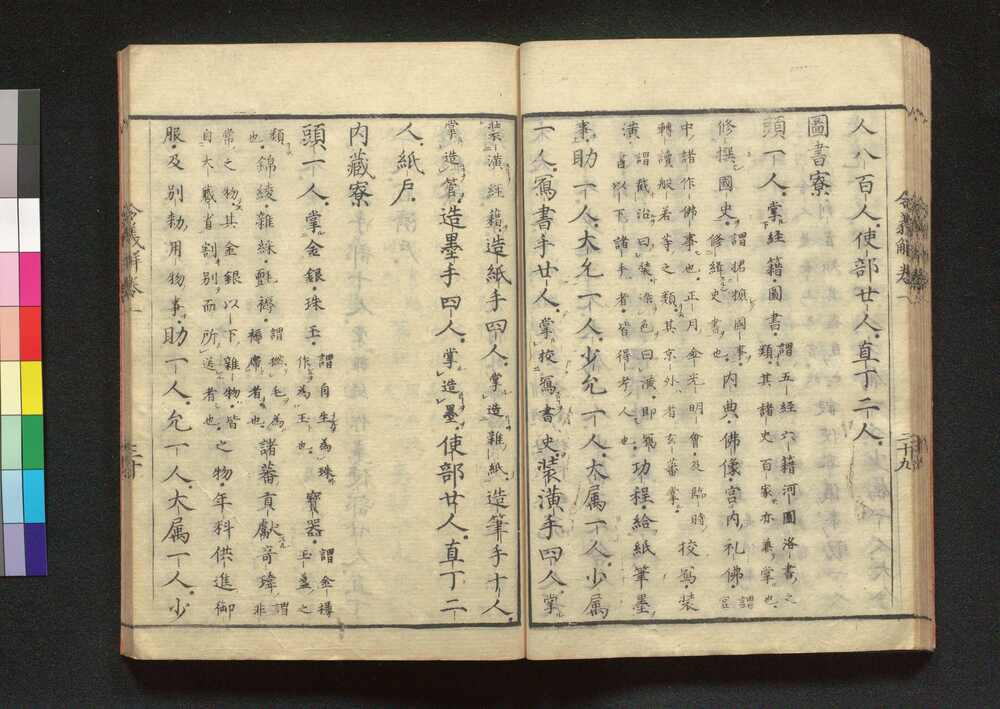 人八百人使部廿人直丁二人
圖書寮
頭一人掌經籍圖書謂五經六籍河圖洛書之類其諸史百家亦兼掌也
修撰國史謂捃摭國事修緝史書也内典佛像宮内礼佛謂宮
中諸作佛事也正月金光明會及臨時轉讀般若等之類其京外者玄蕃掌校寫装
潢謂截治曰装染色曰潢即寫書以下諸手者皆得考人也功程給紙筆墨
事助一人大允一人少允一人大属一人少属
一人寫書手廿人掌校寫書史装潢手四人掌
装潢經籍造紙手四人掌造雜紙造筆手十人
掌造筆造墨手四人掌造墨使部廿人直丁二
人紙戸
内藏寮
頭一人掌金銀珠玉謂自生為珠作為玉也寶器謂金樽玉盞之
類也錦綾雜綵氈褥謂撚毛為褥席者也諸蕃貢獻竒瑋謂非
常之物其金銀以下雜物皆自大藏省割別而所送者也之物年料供進御
服及別勅用物事助一人允一人大属一人少
令義解卷一
二十九
令義解卷一
三十